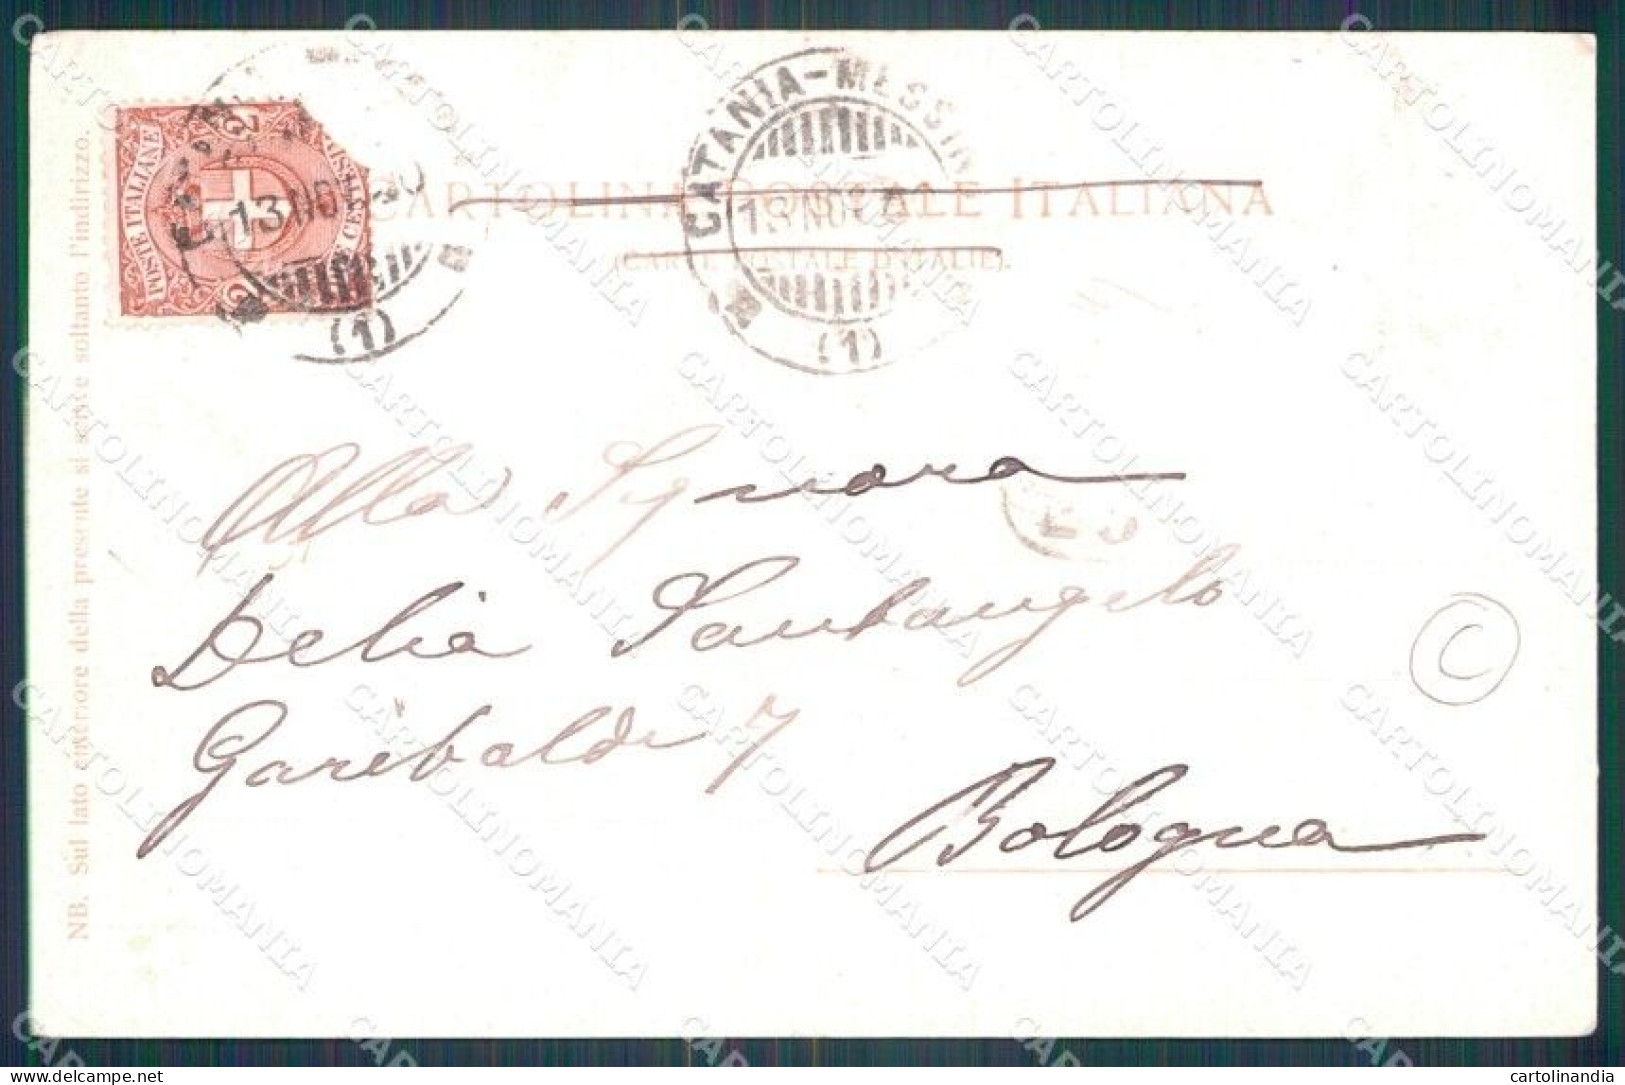 CARTOLINA POSTALE ITALIANA
(CARTE POSTALE D'ITALIE).
POSTE ITALIANE
CATANIA-MESSINA
13 NOV
(1)
13 NOV
(1)
Alla Signora
Delia Santangelo
Garibaldi 7
Bologna
NB. Sul lato anteriore della presente si scrive soltanto l'indirizzo.
C
CARTOLINOMANIA
delcampe.net
cartolinandia